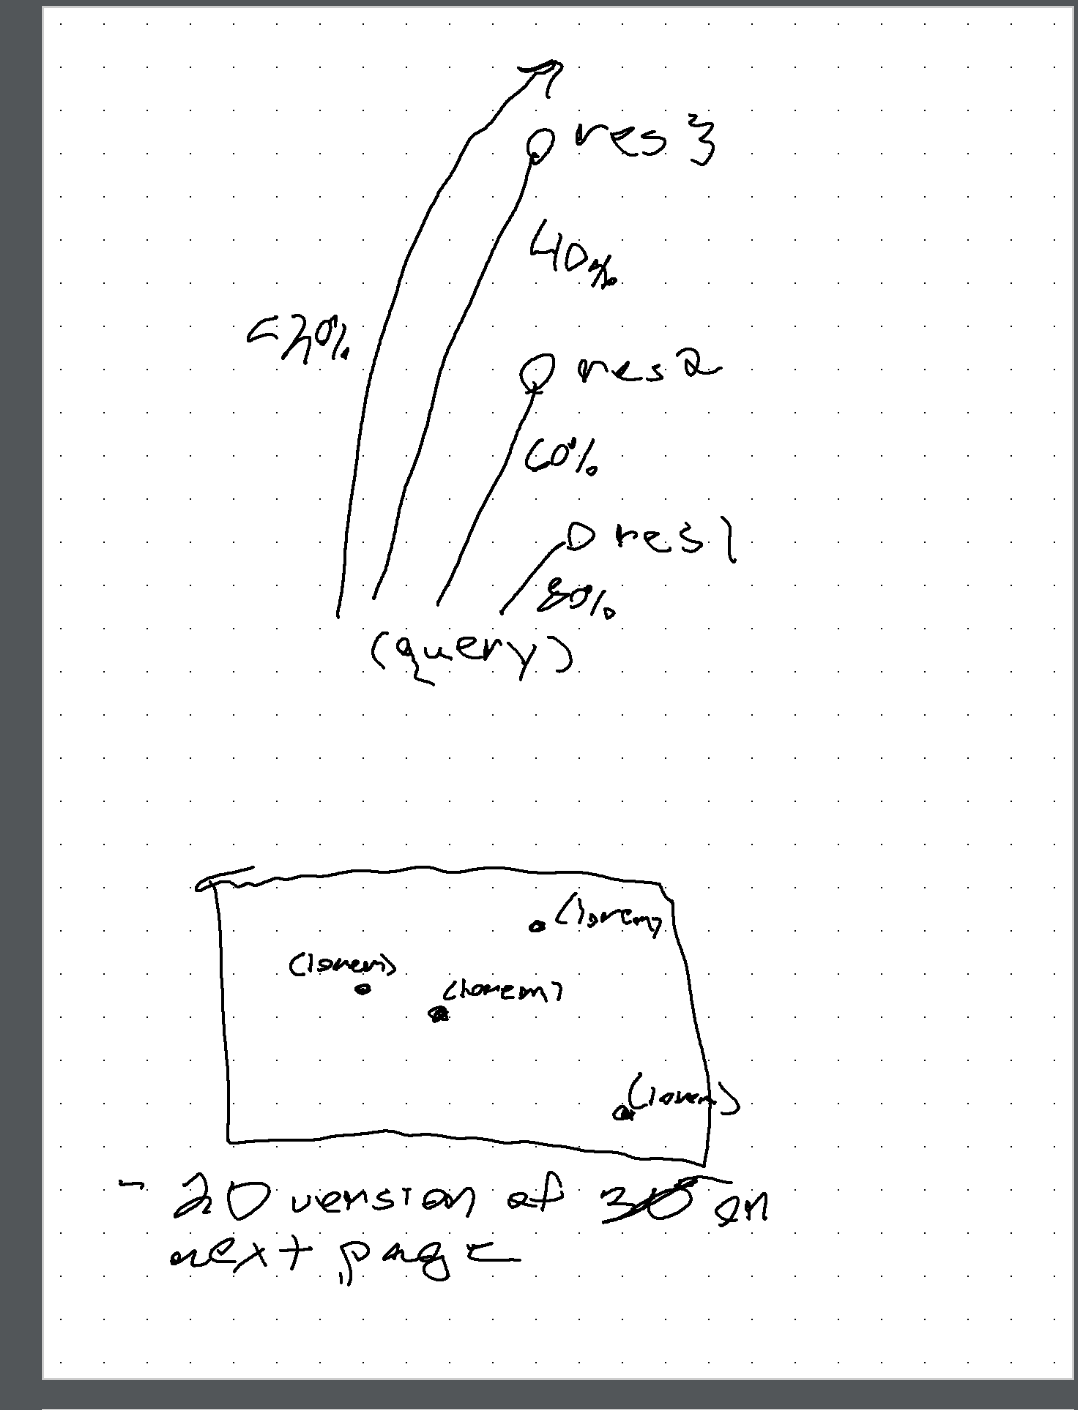 res 3
40%
<20%
res 2
60%
res 1
80%
(query)
(lorem)
(lorem)
(lorem)
(lorem)
- 2D version of 3D on
next page